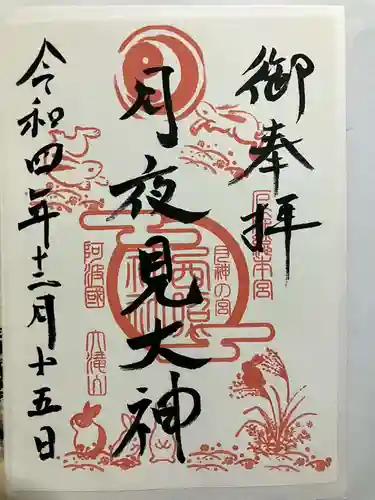 御奉拝
月夜見大神
令和四年十二月十五日
月神の宮
西照神社
阿波國
大滝山